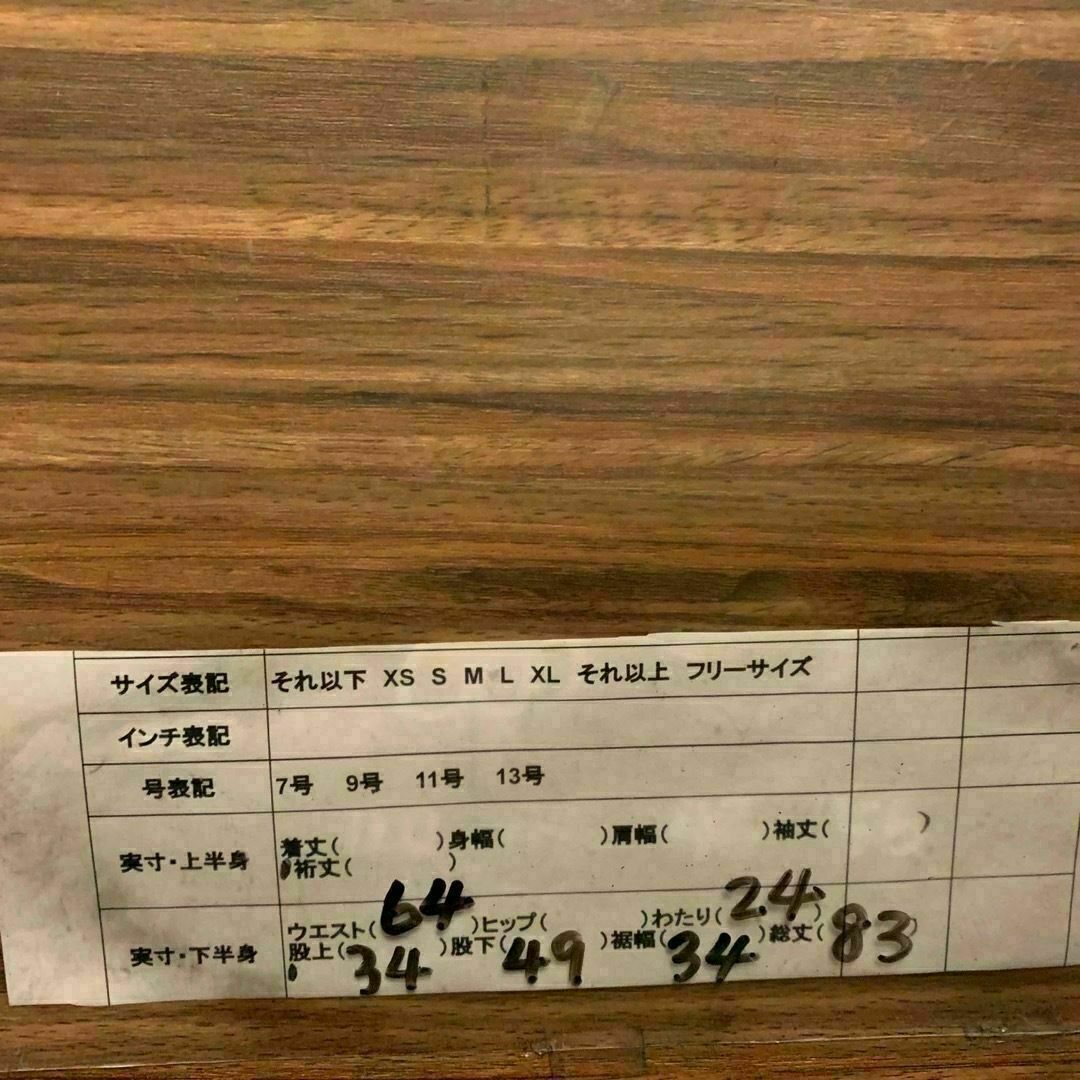 サイズ表記 それ以下 XS S M L XL それ以上 フリーサイズ
インチ表記
号表記 7号 9号 11号 13号
実寸・上半身 着丈( )身幅( )肩幅( )袖丈( )
裄丈( )
実寸・下半身 ウエスト(64)ヒップ( )わたり(24)
股上(34)股下(49)裾幅(34)総丈(83)